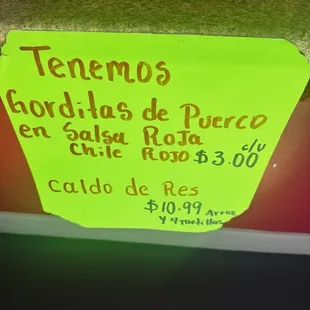 Tenemos
Gorditas de Puerco
en Salsa Roja
Chile Rojo $3.00 c/u
Caldo de Res
$10.99 Arroz
y 4 tortillas